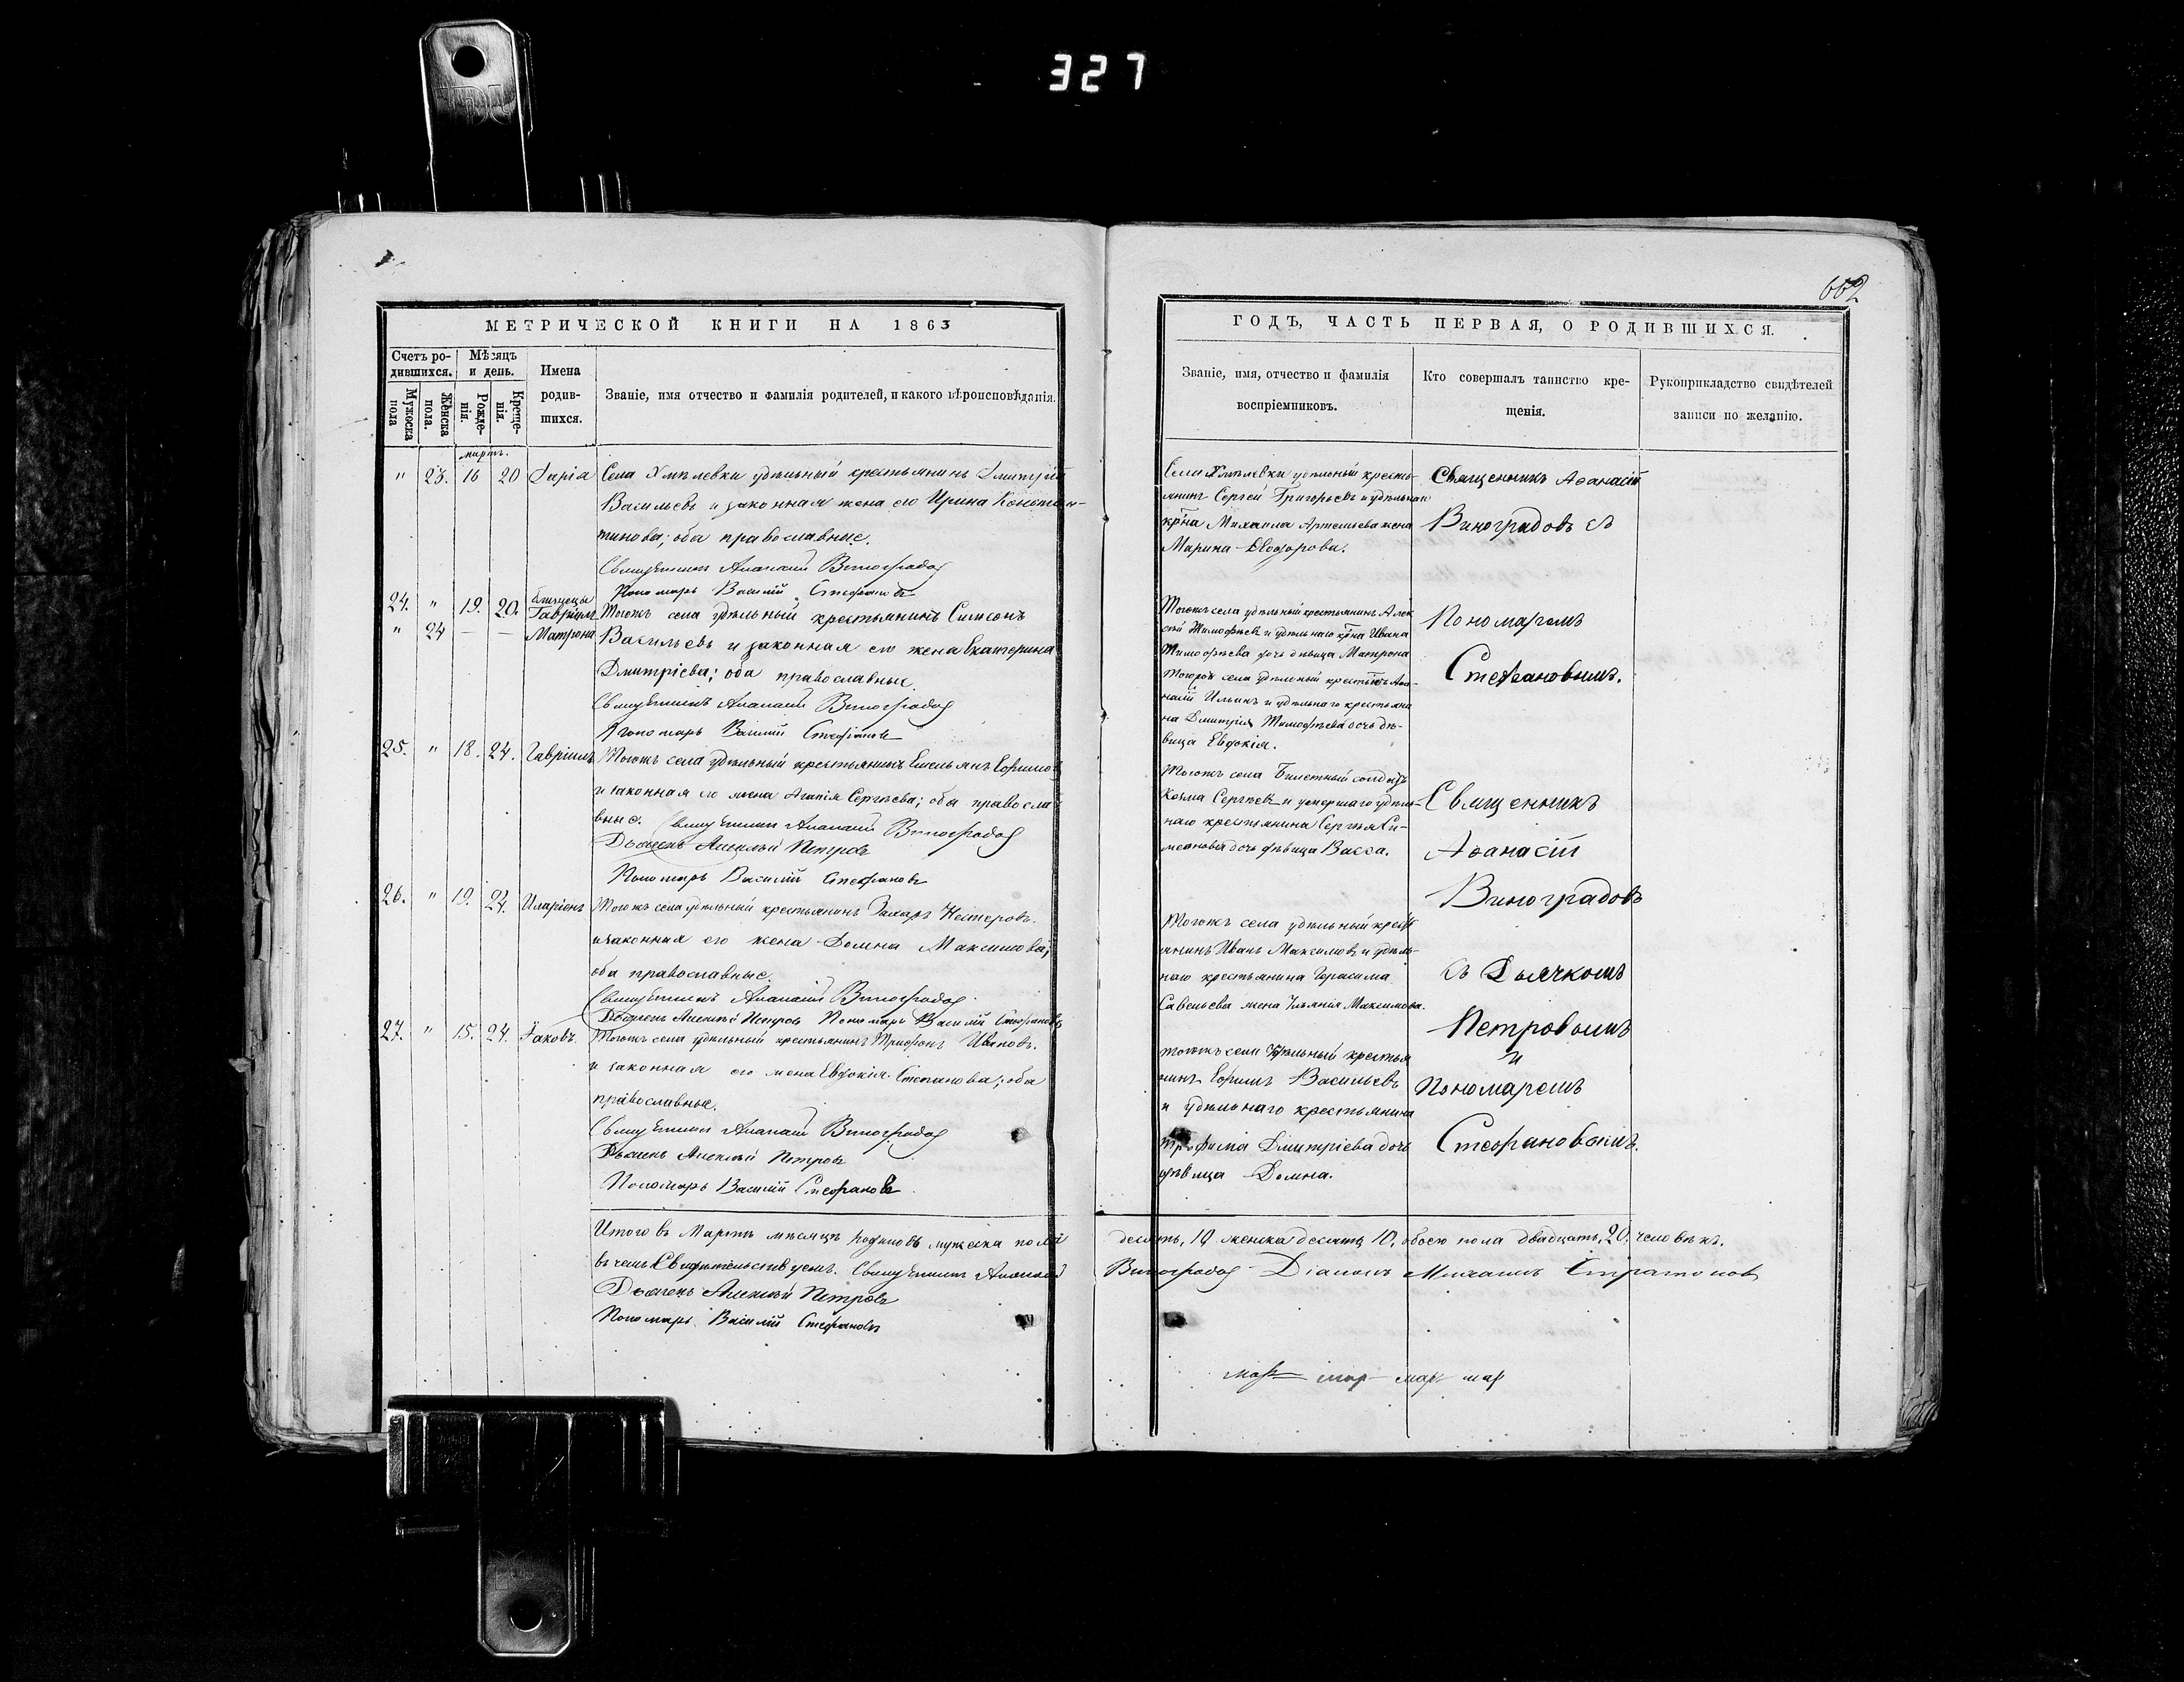 327
662
МЕТРИЧЕСКОЙ КНИГИ НА 1863
Счетъ ро-
дившихся.
Мѣсяцъ
и день.
Мужеска
пола
Женска
пола.
Рожде-
нія.
Креще-
нія.
Имена
родив-
шихся.
Званіе, имя отчество и фамилія родителей, и какого вѣроисповѣданія.
мартъ.
" 23. 16 20 Дарія Села Хмѣлевки удѣльный крестьянинъ Дмитрій
Васильевъ и законная жена его Ирина Констан-
тинова; оба православные.
Священникъ Аѳанасій Виноградов
Пономарь Василій Стефановъ
близнецы
24. " 19. 20. Гавріилъ Тогожъ села удѣльный крестьянинъ Симеонъ
" 24 — — Матрона Васильевъ и законная его жена Екатерина
Дмитріева; оба православные.
Священникъ Аѳанасій Виноградов
Пономарь Василій Стефановъ
25. " 18. 24. Гавріилъ Тогожъ села удѣльный крестьянинъ Емельянъ Ефимовъ
и законная его жена Агапія Сергѣева; оба правосла-
вные. Священникъ Аѳанасій Виноградов
Дьячекъ Алексѣй Петровъ
Пономарь Василій Стефановъ
26. " 19. 24. Иларіонъ Тогожъ села удѣльный крестьянинъ Захаръ Нестеровъ
и законная его жена Домна Максимова;
оба православные.
Священникъ Аѳанасій Виноградов
Дьячекъ Алексѣй Петровъ Пономарь Василій Стефановъ
27. " 15. 24. Іаковъ. Тогожъ села удѣльный крестьянинъ Трифонъ Ивановъ.
и законная его жена Евдокія Степанова; оба
православные.
Священникъ Аѳанасій Виноградов
Дьячекъ Алексѣй Петровъ
Пономарь Василій Стефановъ
Итого въ Мартѣ мѣсяцѣ родиновъ мужеска пола
въ чемъ Свидѣтельствуемъ. Священникъ Аѳанасій
Дьячекъ Алексѣй Петровъ
Пономарь Василій Стефановъ
ГОДЪ, ЧАСТЬ ПЕРВАЯ, О РОДИВШИХСЯ.
Званіе, имя, отчество и фамилія
воспріемниковъ.
Кто совершалъ таинство кре-
щенія.
Рукоприкладство свидѣтелей
записи по желанію.
Села Хмѣлевки удѣльный кресть-
янинъ Сергей Григорьевъ и удѣльнаго
кр-на Михаила Артемьева жена
Марина Ѳеодорова.
Тогожъ села удѣльный крестьянинъ Алек
сѣй Тимофѣевъ и удѣльнаго кр-на Ивана
Тимофѣева дочь дѣвица Матрона
Тогожъ села удѣльный крестьян. Аѳа-
насій Ильинъ и удѣльнаго крестьяни
на Дмитрія Тимофѣева дочь дѣ-
вица Евдокія.
Тогожъ села Билетный солдатъ
Козма Сергѣевъ и умершаго удѣль-
наго крестьянина Сергѣя Си-
меонова дочь дѣвица Васса.
Тогожъ села удѣльный кресть
янинъ Иванъ Максимовъ и удѣль-
наго крестьянина Герасима
Савельева жена Ульянія Максимова.
тогожъ села Удѣльный крестья
нинъ Ефимъ Васильевъ
и удѣльнаго крестьянина
Трофима Дмитріева дочь
дѣвица Домна.
Священникъ Аѳанасій
Виноградовъ съ
Пономаремъ
Стефановымъ.
Священникъ
Аѳанасій
Виноградовъ
съ Дьячкомъ
Петровымъ
и
Пономаремъ
Стефановымъ.
десять, 10 женска десять 10, обоего пола двадцать, 20. человѣкъ.
Виноградов Діаконъ Михаилъ Стратоновъ
мар мар мар мар